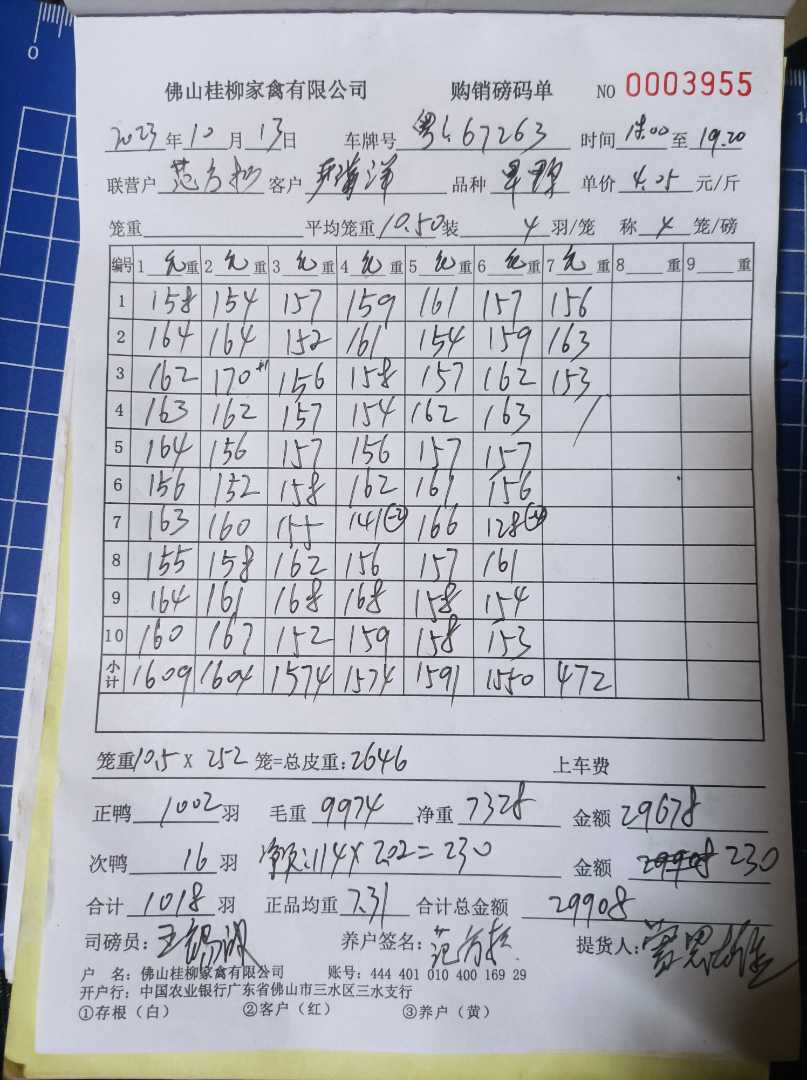 佛山桂柳家禽有限公司 购销磅码单 NO 0003955
2023年10月13日 车牌号 粤 67263 时间 至 19.20
联营户 范 客户 海洋 品种 单价 4.05 元/斤
笼重 平均笼重 10.50 装 4 羽/笼 称 4 笼/磅
编号 1 元 重 2 元 重 3 元 重 4 元 重 5 元 重 6 元 重 7 元 重 8 重 9 重
1 158 154 157 159 161 157 156
2 164 164 152 161 154 159 163
3 162 170+1 156 158 157 162 153
4 163 162 157 154 162 163 /
5 164 156 157 156 157 157
6 156 152 158 162 161 156
7 163 160 155 141(-2) 166 128(-4)
8 155 158 162 156 157 161
9 164 161 168 168 158 154
10 160 167 152 159 158 153
小计 1609 1604 1574 1574 1591 1550 472
笼重 10.5 X 252 笼=总皮重:2646 上车费
正鸭 1002 羽 毛重 9974 净重 7328 金额 29678
次鸭 16 羽 114×2.02=230 金额 29908 230
合计 1018 羽 正品均重 7.31 合计总金额 29908
司磅员: 王 养户签名: 范 提货人:
户 名: 佛山桂柳家禽有限公司 账号: 444 401 010 400 169 29
开户行: 中国农业银行广东省佛山市三水区三水支行
①存根(白) ②客户(红) ③养户(黄)